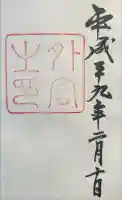 平成二十九年二月十日
外宮
之印